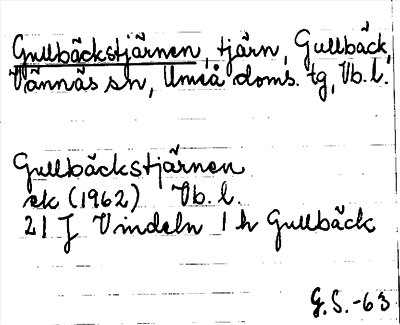 Gullbäckstjärnen, tjärn, Gullbäck,
Vännäs sn, Umeå doms. tg, Vb. l.
Gullbäckstjärnen
ek (1962) Vb. l.
21 J Vindeln 1 h Gullbäck
G. S. -63